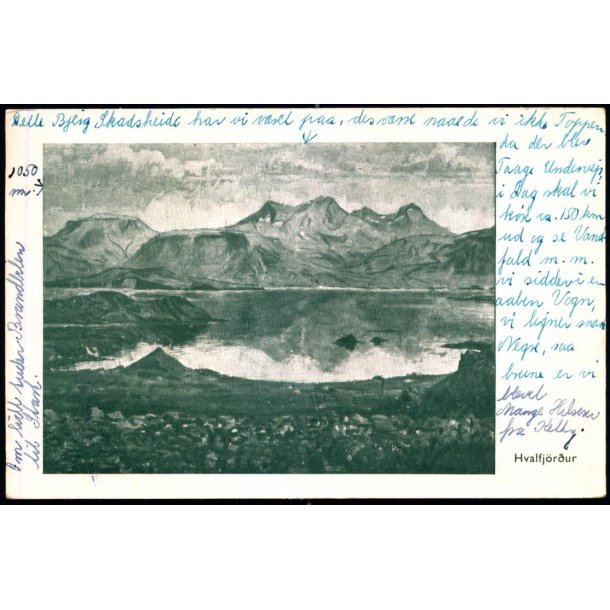 Dette Bjerg Skadsheide har vi været paa, desværre naaede vi ikke Toppen
da der blev
Taage Undervejs
i Dag skal vi
køre ca. 150 km
ud og se Vand
fald m.m.
vi sidder i en
aaben Vogn,
vi ligner snart
Negre, saa
brune er vi
blevet
Mange Hilsener
fra Kelly.
1050
m.
Hvalfjörður